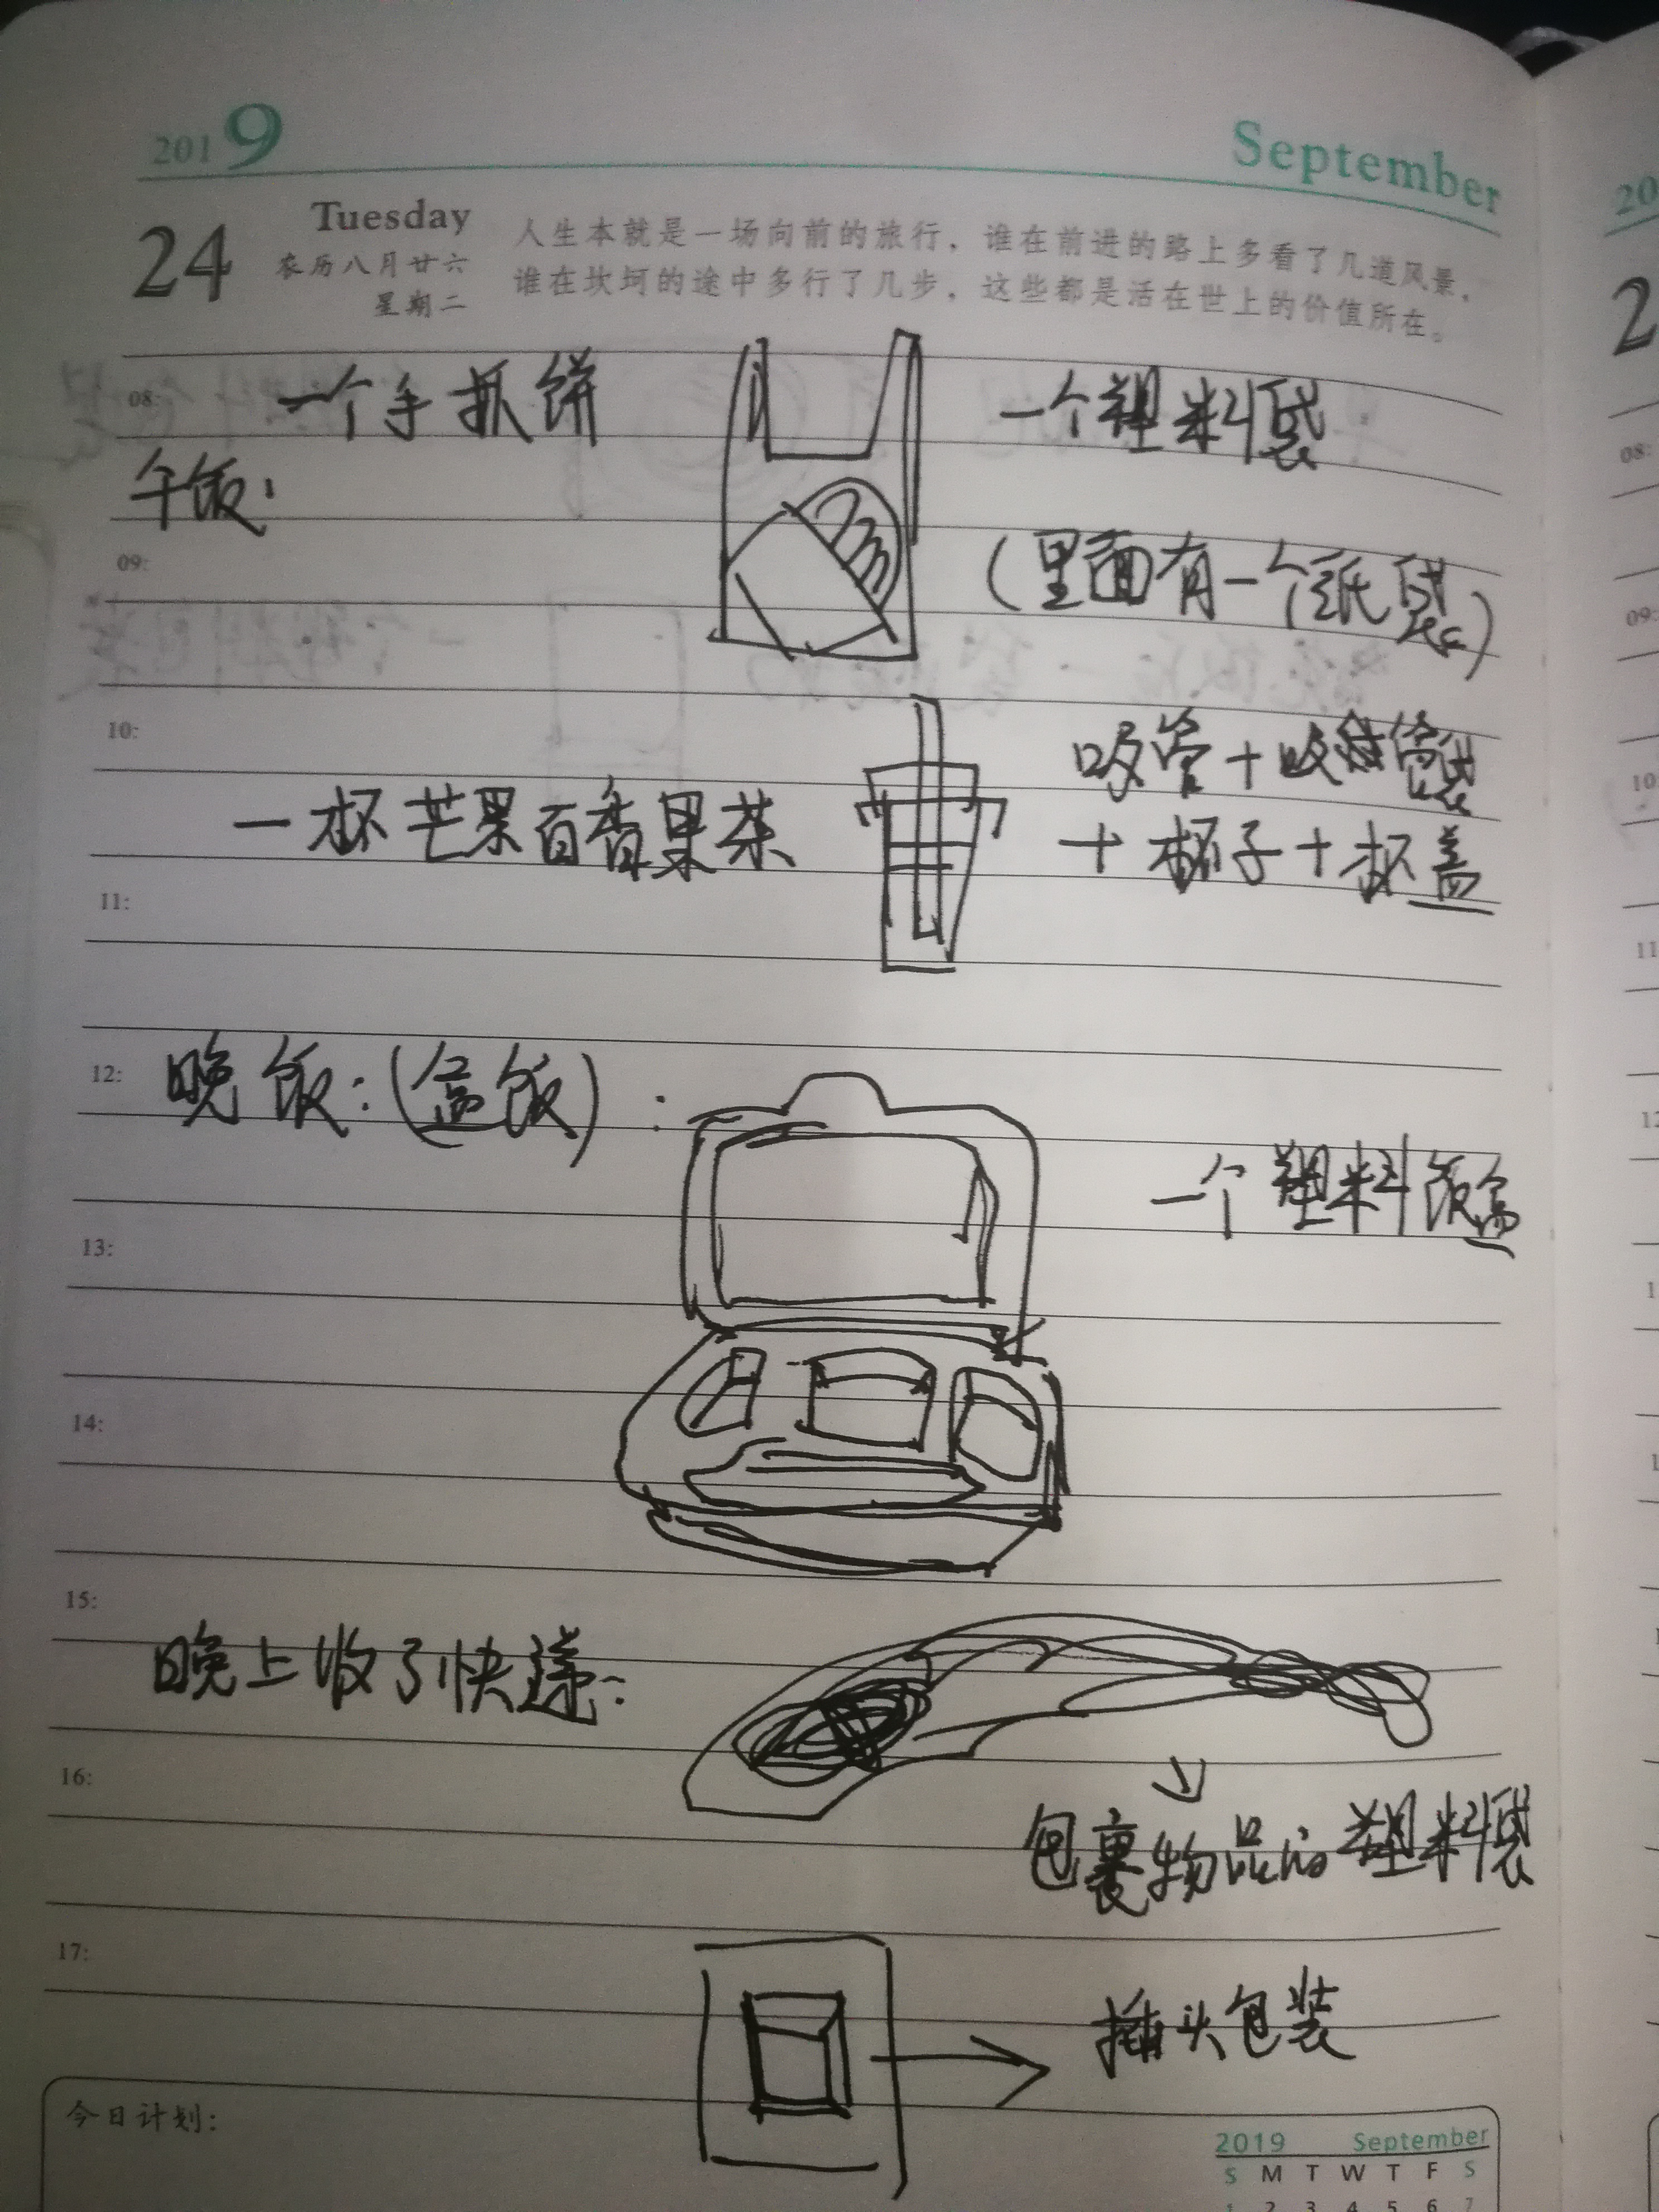 2019 September
24 Tuesday
农历八月廿六
星期二
人生本就是一场向前的旅行，谁在前进的路上多看了几道风景，
谁在坎坷的途中多行了几步，这些都是活在世上的价值所在。
08: 一个手抓饼 一个塑料袋
午饭：
09: （里面有一个纸袋）
10: 吸管+吸管袋
一杯芒果百香果茶 +杯子+杯盖
11:
12: 晚饭：（盒饭）：
一个塑料饭盒
13:
14:
15:
晚上收了快递：
16:
包裹物品的塑料袋
17:
插头包装
今日计划：
2019 September
S M T W T F S
1 2 3 4 5 6 7
20
2
08:
09:
10:
11
12